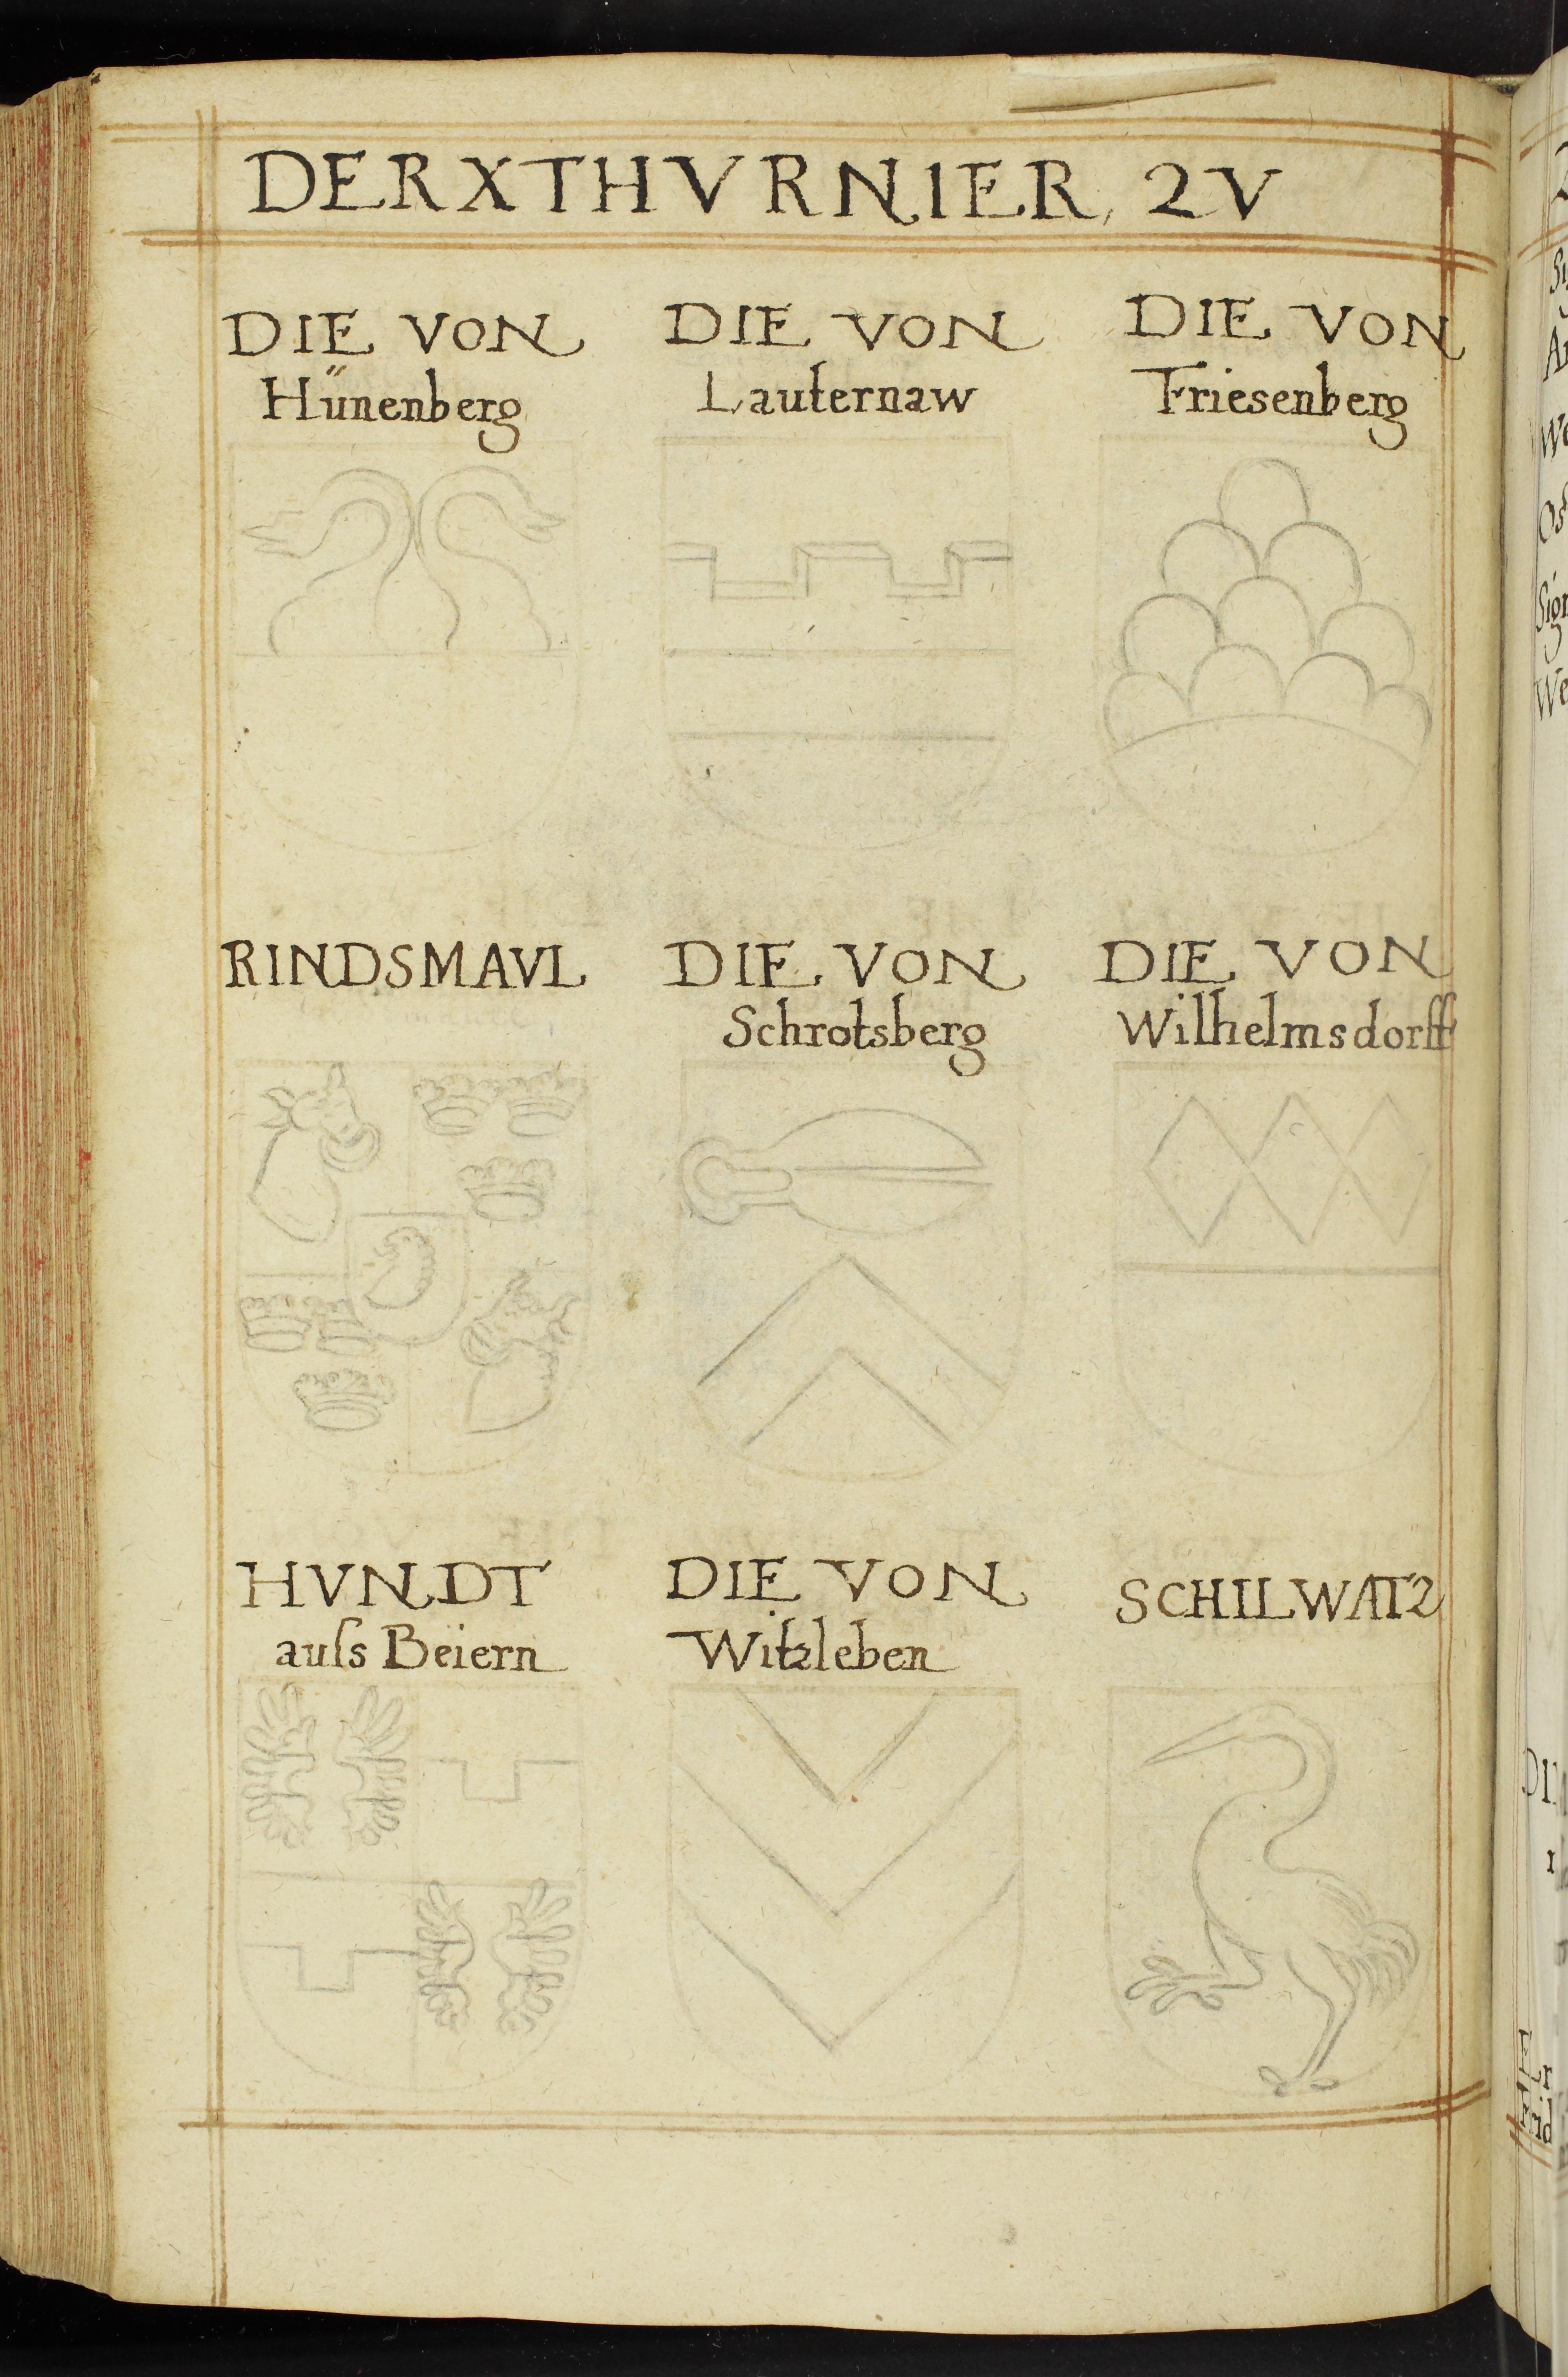 DER X THVRNIER, ZV
DIE VON
Hűnenberg
DIE VON
Lauternaw
DIE VON
Friesenberg
RINDSMAVL
DIE VON
Schrotsberg
DIE VON
Wilhelmsdorff
HVNDT
auſs Beiern
DIE VON
Witzleben
SCHILWATZ